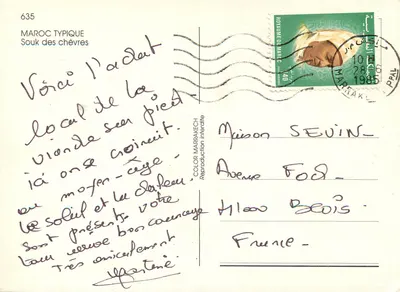 635
MAROC TYPIQUE
Souk des chèvres
Voici l'achat
local de la
viande sur pied -
ici on se croirait
au moyen-âge -
Le soleil et la chaleur
sont présents. Votre
bon courage
Très amicalement
Martine
COLOR MARRAKECH
Reproduction interdite
1985
Maison SEVIN -
Avenue Foch -
41000 BLOIS -
France -